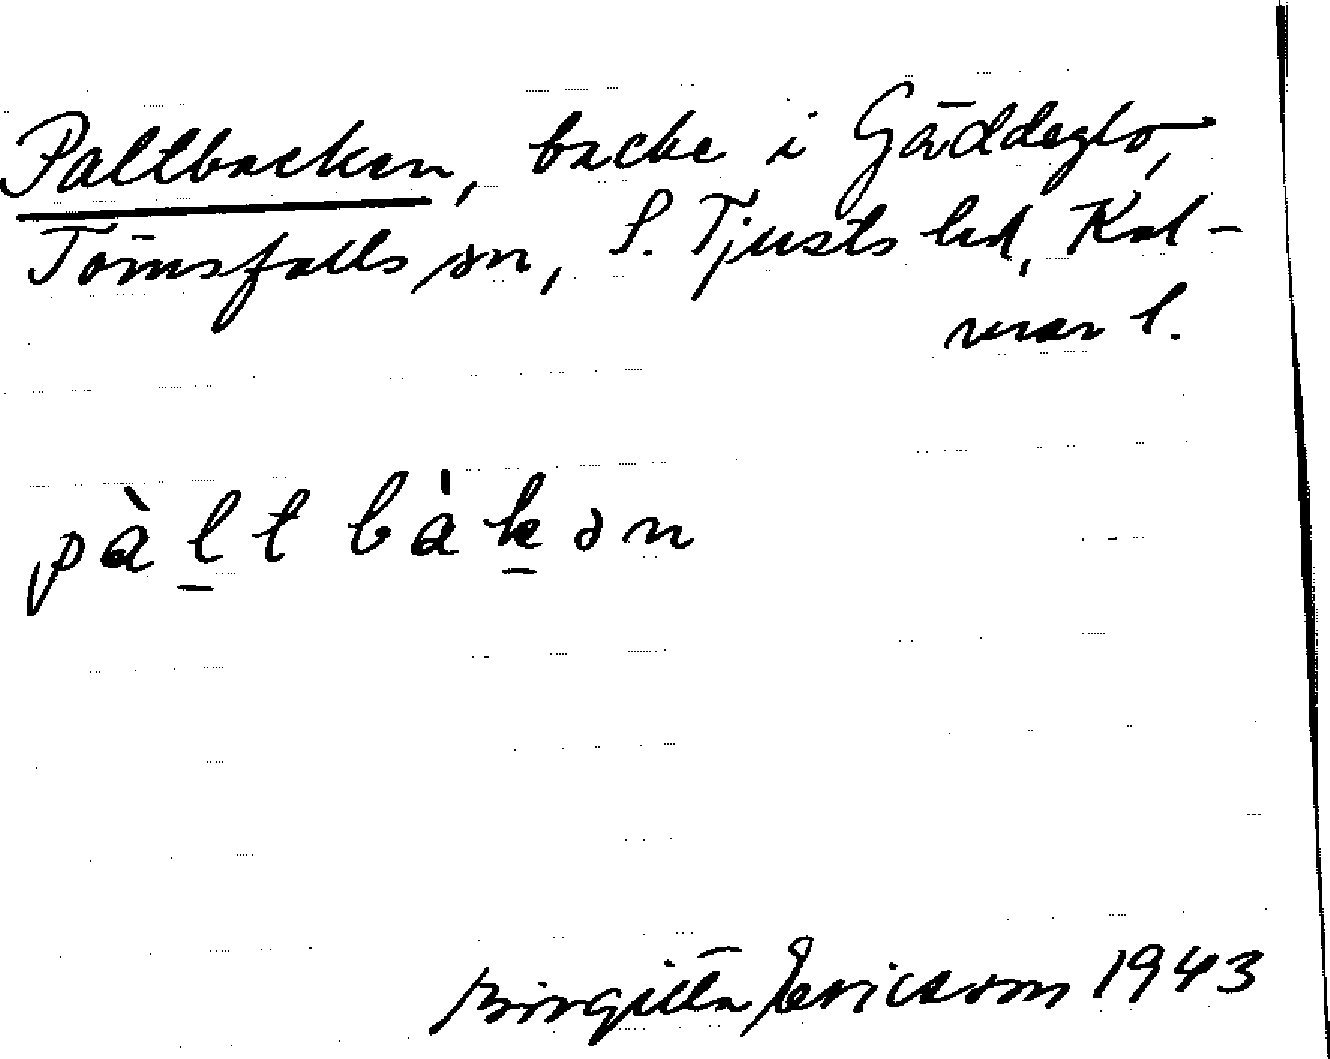 Paltbacken, backe i Gäddeglo,
Törnsfalls sn, S. Tjusts hd, Kal-
mar l.
pàltbàkən
Birgitta Ericsson 1943